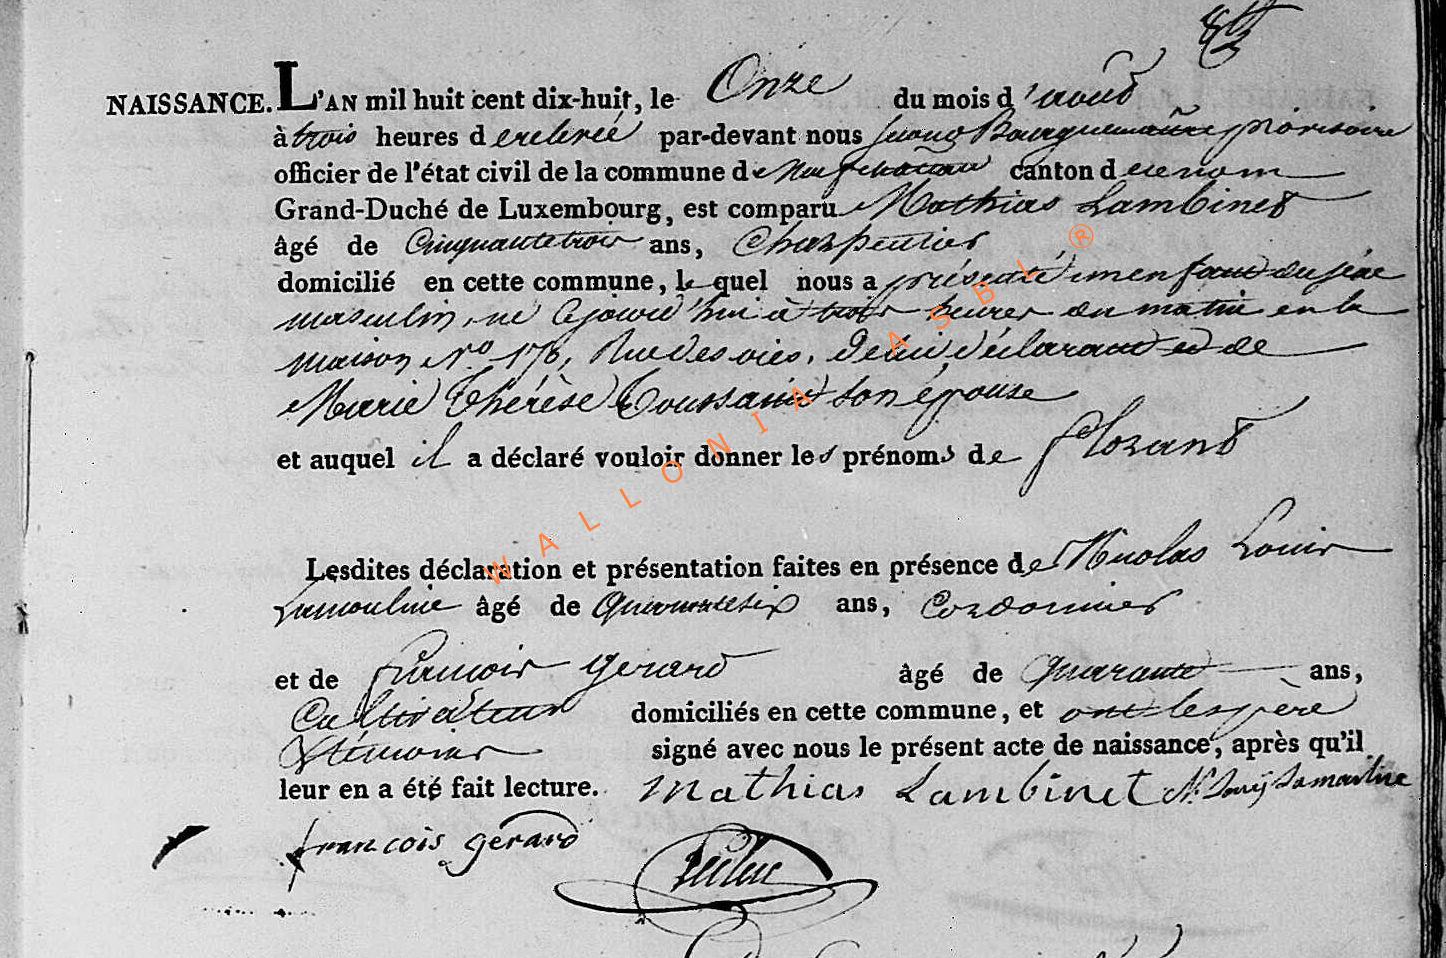 NAISSANCE. L'AN mil huit cent dix-huit, le Onze du mois d'aoud
à trois heures de relevée par-devant nous Bourguemaître provisoire
officier de l'état civil de la commune de Neufchateau canton de ce nom
Grand-Duché de Luxembourg, est comparu Mathias Lambinet
âgé de Cinquantetrois ans, Charpentier
domicilié en cette commune, le quel nous a présenté un enfant du sexe
masculin, né cejourd'hui à trois heures du matin en la
maison N.° 170, Rue des oies, de lui déclarant et de
Marie Thérèse Toussaint son épouse
et auquel il a déclaré vouloir donner les prénoms de florand
Lesdites déclaration et présentation faites en présence de Nicolas Louis
Lamouline âgé de Quarantesix ans, Cordonnier
et de françois gerard âgé de Quarante ans,
Cultivateur domiciliés en cette commune, et ont les père
& témoins signé avec nous le présent acte de naissance, après qu'il
leur en a été fait lecture. Mathias Lambinet N. Louis Lamouline
françois gerard
WALLONIA ASBL ®